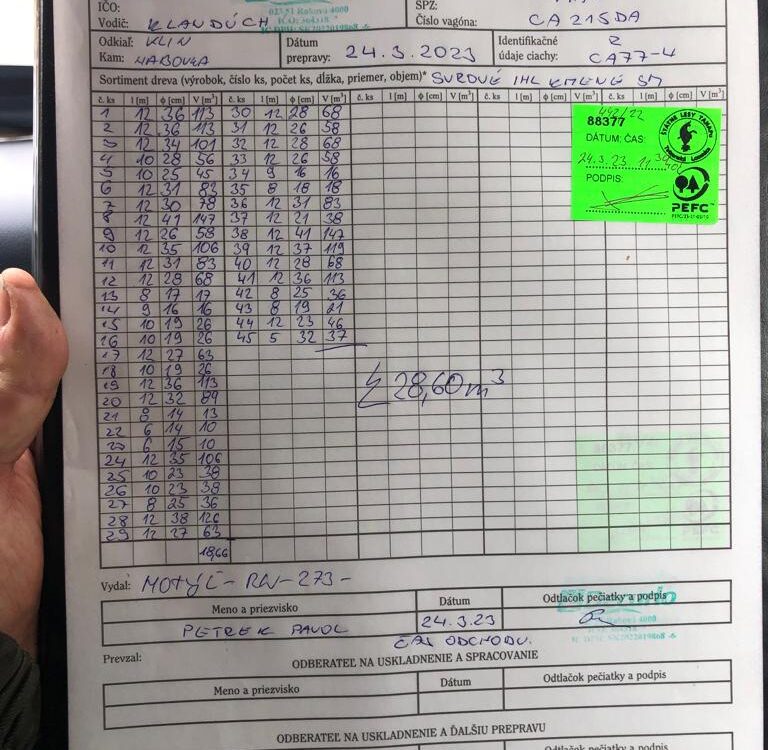 IČO:
SPZ:
023 51 Raková 4000
Vodič: KLANDÚCH
Číslo vagóna: CA215DA
Odkiaľ: KLIN
Kam: HABOVKA
Dátum prepravy: 24.3.2023
Identifikačné údaje ciachy: R CA77-4
Sortiment dreva (výrobok, číslo ks, počet ks, dĺžka, priemer, objem)* SUROVÉ IHL KMENE SM
č. ks l [m] ϕ [cm] V [m³] č. ks l [m] ϕ [cm] V [m³] č. ks l [m] ϕ [cm] V [m³] č. ks l [m] ϕ [cm] V [m³] č. ks l [m] ϕ [cm] V [m³]
1 12 36 113 30 12 28 68
2 12 36 113 31 12 26 58
3 12 34 101 32 12 28 68
4 10 28 56 33 12 26 58
5 10 25 45 34 9 16 16
6 12 31 83 35 8 18 18
7 12 30 78 36 12 31 83
8 12 41 147 37 12 21 38
9 12 26 58 38 12 41 147
10 12 35 106 39 12 37 119
11 12 31 83 40 12 28 68
12 12 28 68 41 12 36 113
13 8 17 17 42 8 25 36
14 9 16 16 43 8 19 21
15 10 19 26 44 12 23 46
16 10 19 26 45 5 32 37
17 12 27 63
18 10 19 26
19 12 36 113
20 12 32 89
21 8 14 13
22 6 14 10
23 6 15 10
24 12 35 106
25 10 23 38
26 10 23 38
27 8 25 36
28 12 38 126
29 12 27 63
18,66
Σ 28,60 m³
442/22
88377
DÁTUM; ČAS:
24.3.23 11
PODPIS:
ŠTÁTNE LESY TANAPu
Tatranská Lomnica
PEFC
88377
Vydal: MOTYĽ - RN - 273 -
Meno a priezvisko Dátum Odtlačok pečiatky a podpis
PETREK PAVOL 24.3.23
ČAS ODCHODU.
Prevzal:
ODBERATEĽ NA USKLADNENIE A SPRACOVANIE
Meno a priezvisko Dátum Odtlačok pečiatky a podpis
ODBERATEĽ NA USKLADNENIE A ĎALŠIU PREPRAVU